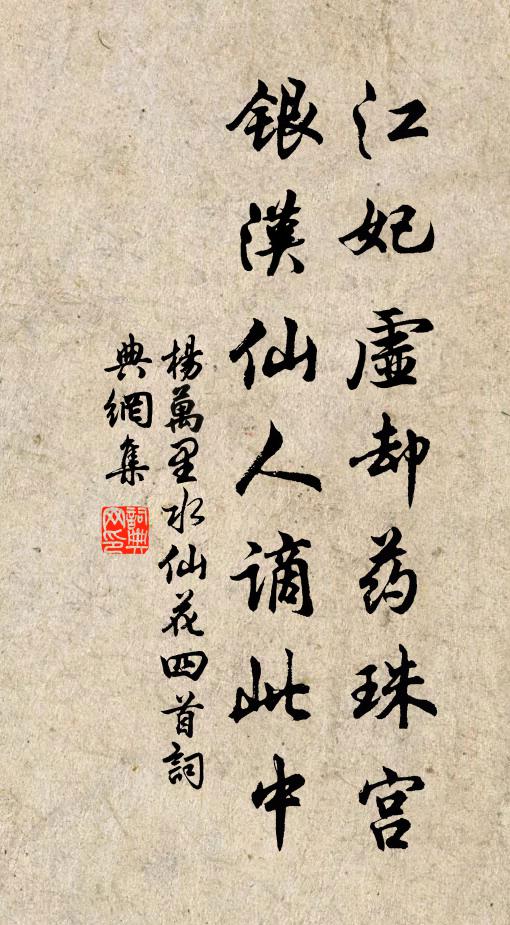 江妃虛却药珠宫
銀漢仙人谪此中
楊萬里水仙花四首詞
典網集
詞典網印